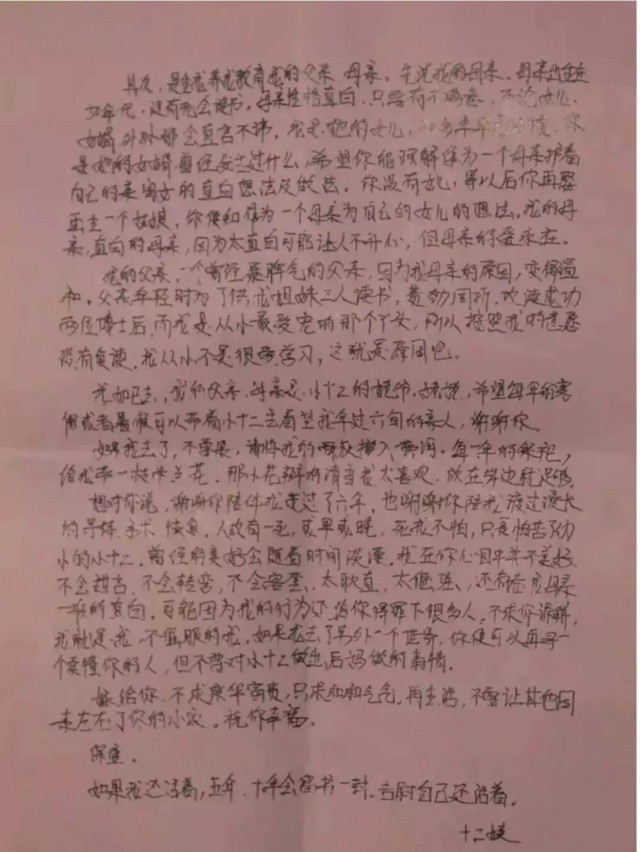 其次，是生我养我教育我的父亲 母亲。先说我的母亲。母亲出生在
50年代，没有机会读书，母亲性格直白，只要有不满意，不论女儿，
女婿 外孙都会直言不讳，我是她的女儿，
是她的女婿 曾经发生过什么，希望你能理解作为一个母亲护着
自己的亲闺女的直白想法及做法。你没有女儿，等以后你再婚
再生一个姑娘，你便知作为一个母亲为自己的女儿的想法。我的母
亲，直白的母亲，因为太直白可能让人不开心，但母亲的爱永在。
我的父亲，一个曾经暴脾气的父亲，因为我母亲的原因，变得温
和。父亲年轻时为了供我姐妹三人读书，费劲周折，欢送成功
两位博士后，而我是从小最受宠的那个丫头，所以按照我的意愿
没有复读。我从小不是很爱学习，这就是原因吧。
我如已去，我的父亲，母亲是小十二的姥爷，姥姥，希望每年的寒
假或者暑假可以带着小十二去看望我年过六旬的亲人，谢谢你
如果我去了，不要哭，请将我的 撒入 每一年的祭祀，
给我带一枝 兰花。那小花瓣的清香我太喜欢。放在岸边就足够。
想对你说，谢谢你陪伴我走过了六年，也谢谢你陪我度过漫长
的寻体，手术，恢复，人故有一死，或早或晚，死我不怕，只是怕苦了幼
小的小十二。曾经的美好会随着时间淡漠。我在你心目中并不美好，
不会甜言，不会转弯，不会 太耿直，太倔强，还有着我母亲
一样的直白。可能因为我的行为，你得罪下很多人，不求你谅解，
我就是我，不值服的我，如果我去了另外一个世界，你便可以再寻一
个读懂你的人，但不要对小十二做出后妈做的事情。
嫁给你，不求荣华富贵，只求和和气气。再生活，不要让其他因
素左右了你的小家。祝你幸福。
保重。
如果我还活着，五年、十年会留书一封，告慰自己还活着。
十二